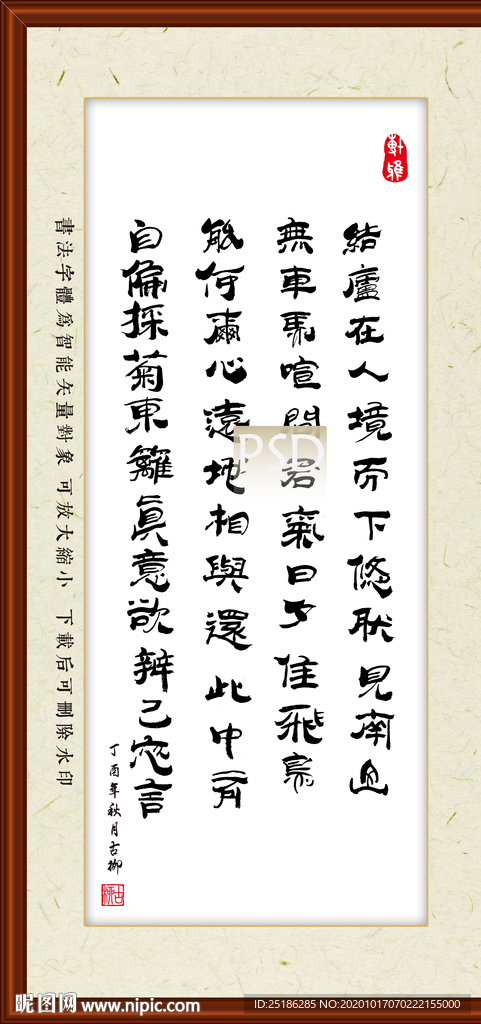 軒雅
結廬在人境而下悠然見南山
無車馬喧問君氣日夕佳飛鳥
能何爾心遠地相與還此中有
自偏採菊東籬真意欲辨已忘言
丁酉年秋月古柳
書法字體為智能矢量對象 可放大縮小 下載后可刪除水印
PSD
昵图网 www.nipic.com
ID:25186285 NO:20201017070222155000